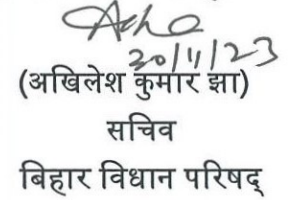 20/11/23
(अखिलेश कुमार झा)
सचिव
बिहार विधान परिषद्